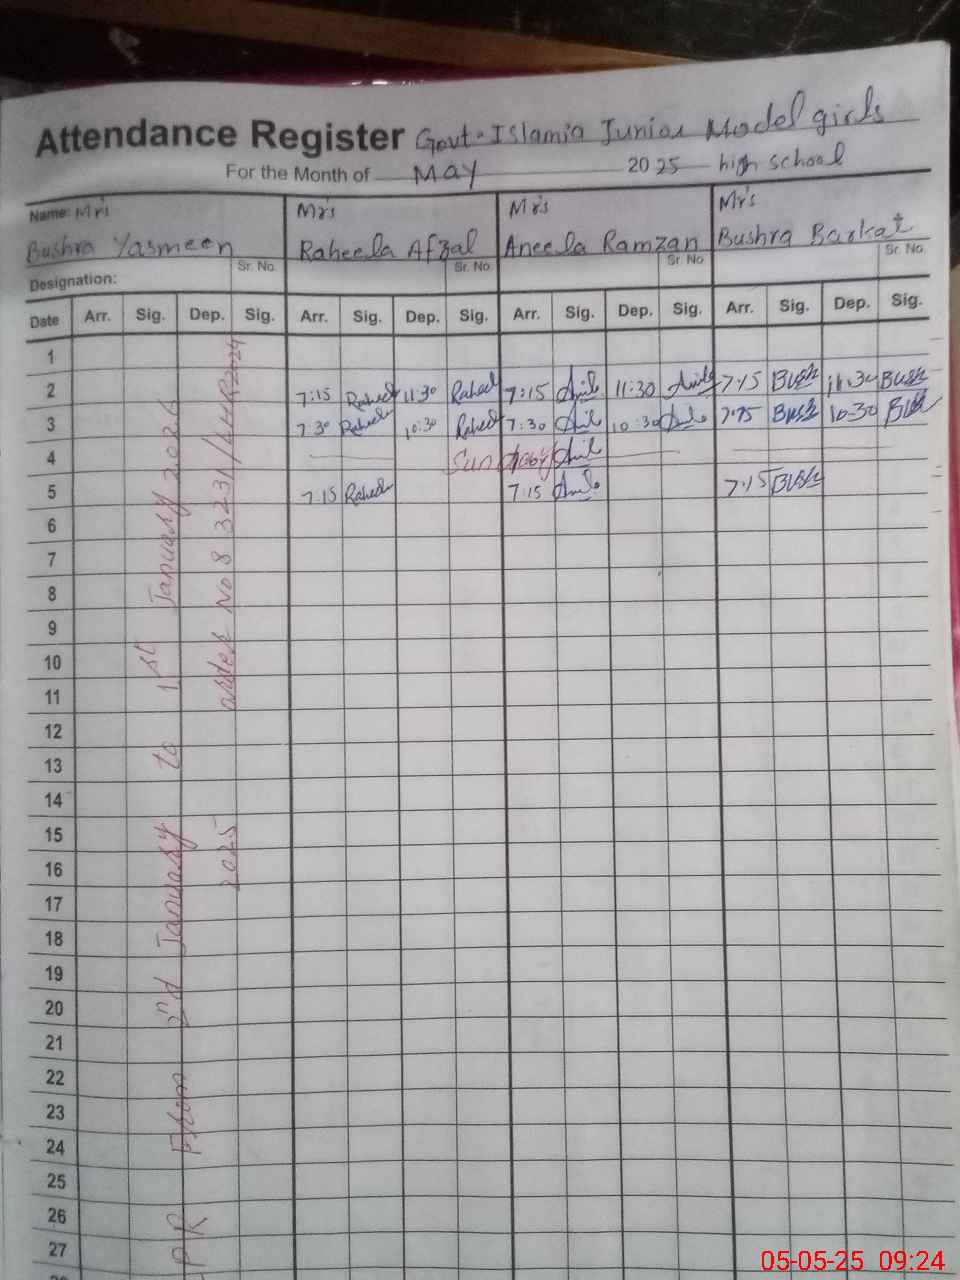 Attendance Register Govt. Islamia Junior Model girls
For the Month of May 2025 high school
Name: Mrs Bushra Yasmeen
Mrs Raheela Afzal
Mrs Aneela Ramzan
Mrs Bushra Barkat
Designation: Sr. No. Sr. No. Sr. No. Sr. No.
Date Arr. Sig. Dep. Sig. Arr. Sig. Dep. Sig. Arr. Sig. Dep. Sig. Arr. Sig. Dep. Sig.
1
2 7:15 Raheel 11:30 Raheel 7:15 11:30 7:15 Bush 11:30 Bush
3 7:30 Raheel 10:30 Raheel 7:30 10:30 Bush 10:30
4 Sunday
5 7:15 Raheel 7:15 7:15 Bush
6
7
8
9
10
11
12
13
14
15
16
17
18
19
20
21
22
23
24
25
26
27
PR From 2nd January to 1st January 2026
2025 order No 83231
05-05-25 09:24